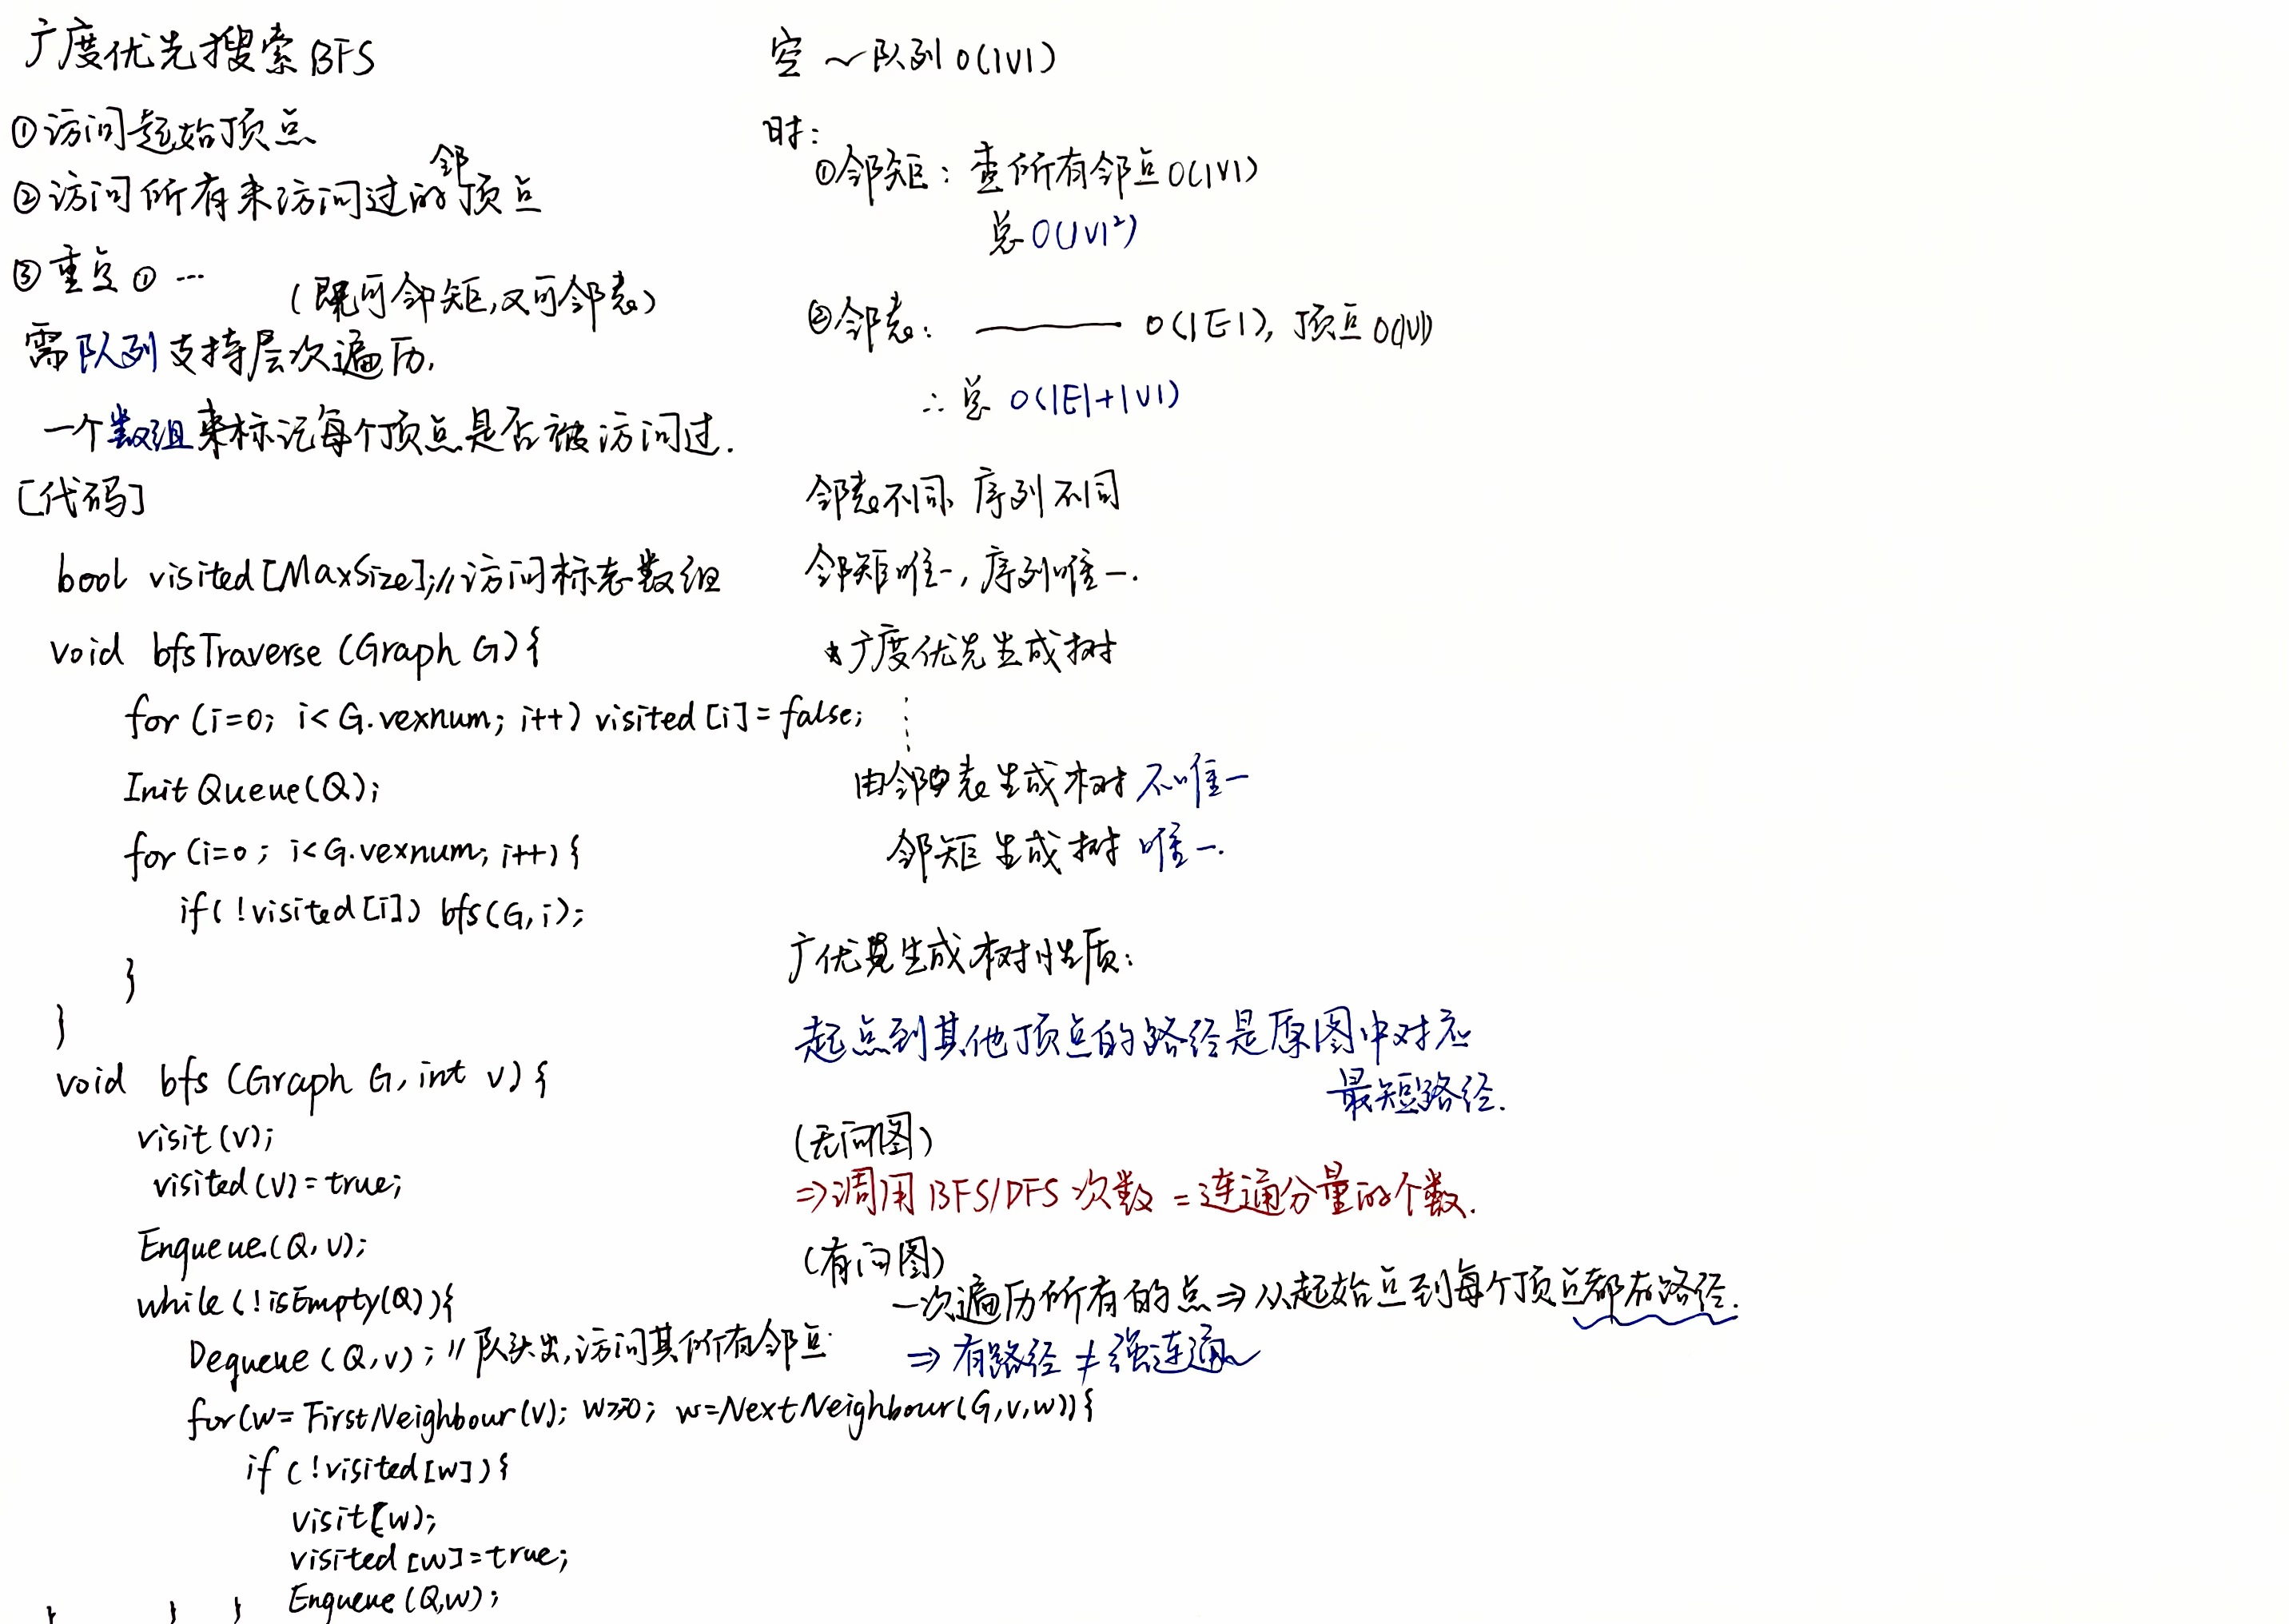 广度优先搜索BFS
①访问起始顶点
②访问所有未访问过的邻顶点
③重复① …
(既可邻矩,又可邻表)
需队列支持层次遍历,
一个数组来标记每个顶点是否被访问过.
[代码]
bool visited[MaxSize];//访问标志数组
void bfsTraverse(Graph G){
for(i=0; i<G.vexnum; i++) visited[i]=false;
InitQueue(Q);
for(i=0; i<G.vexnum; i++){
if(!visited[i]) bfs(G,i);
}
}
void bfs(Graph G, int v){
visit(v);
visited(v)=true;
Enqueue(Q,v);
while(!isEmpty(Q)){
Dequeue(Q,v); //队头出,访问其所有邻点
for(w=FirstNeighbour(v); w≥0; w=NextNeighbour(G,v,w)){
if(!visited[w]){
visit[w);
visited[w]=true;
Enqueue(Q,w);
} } }
空~队列O(|V|)
时:
①邻矩: 查所有邻点O(|V|)
总O(|V|²)
②邻表: —— O(|E|), 顶点O(|V|)
∴总 O(|E|+|V|)
邻表不同,序列不同
邻矩唯一,序列唯一.
*广度优先生成树
⋮
由邻表生成树不唯一
邻矩生成树唯一.
广优生成树性质:
起点到其他顶点的路径是原图中对应
最短路径.
(无向图)
⇒调用BFS/DFS次数=连通分量的个数.
(有向图)
一次遍历所有的点⇒从起始点到每个顶点都有路径.
⇒有路径≠强连通